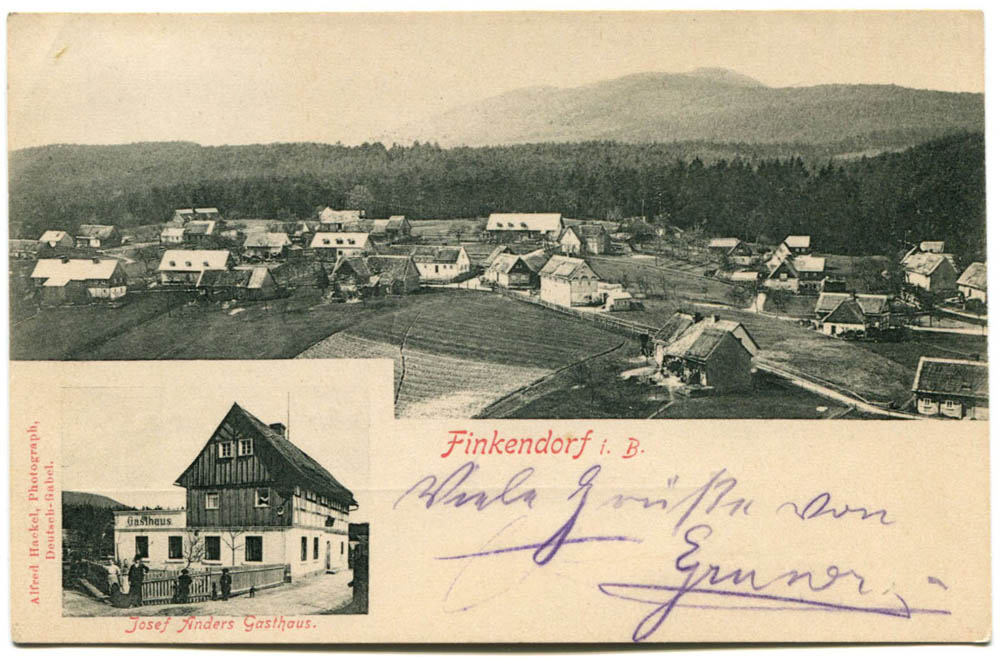 Finkendorf i. B.
Viele Grüße von
E. Gruner.
Gasthaus
Josef Anders Gasthaus.
Alfred Hackel, Photograph,
Deutsch-Gabel.